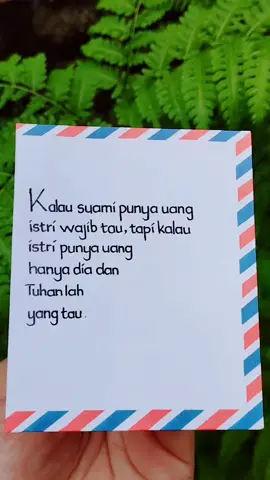 Kalau suami punya uang
istri wajib tau, tapi kalau
istri punya uang
hanya dia dan
Tuhan lah
yang tau.